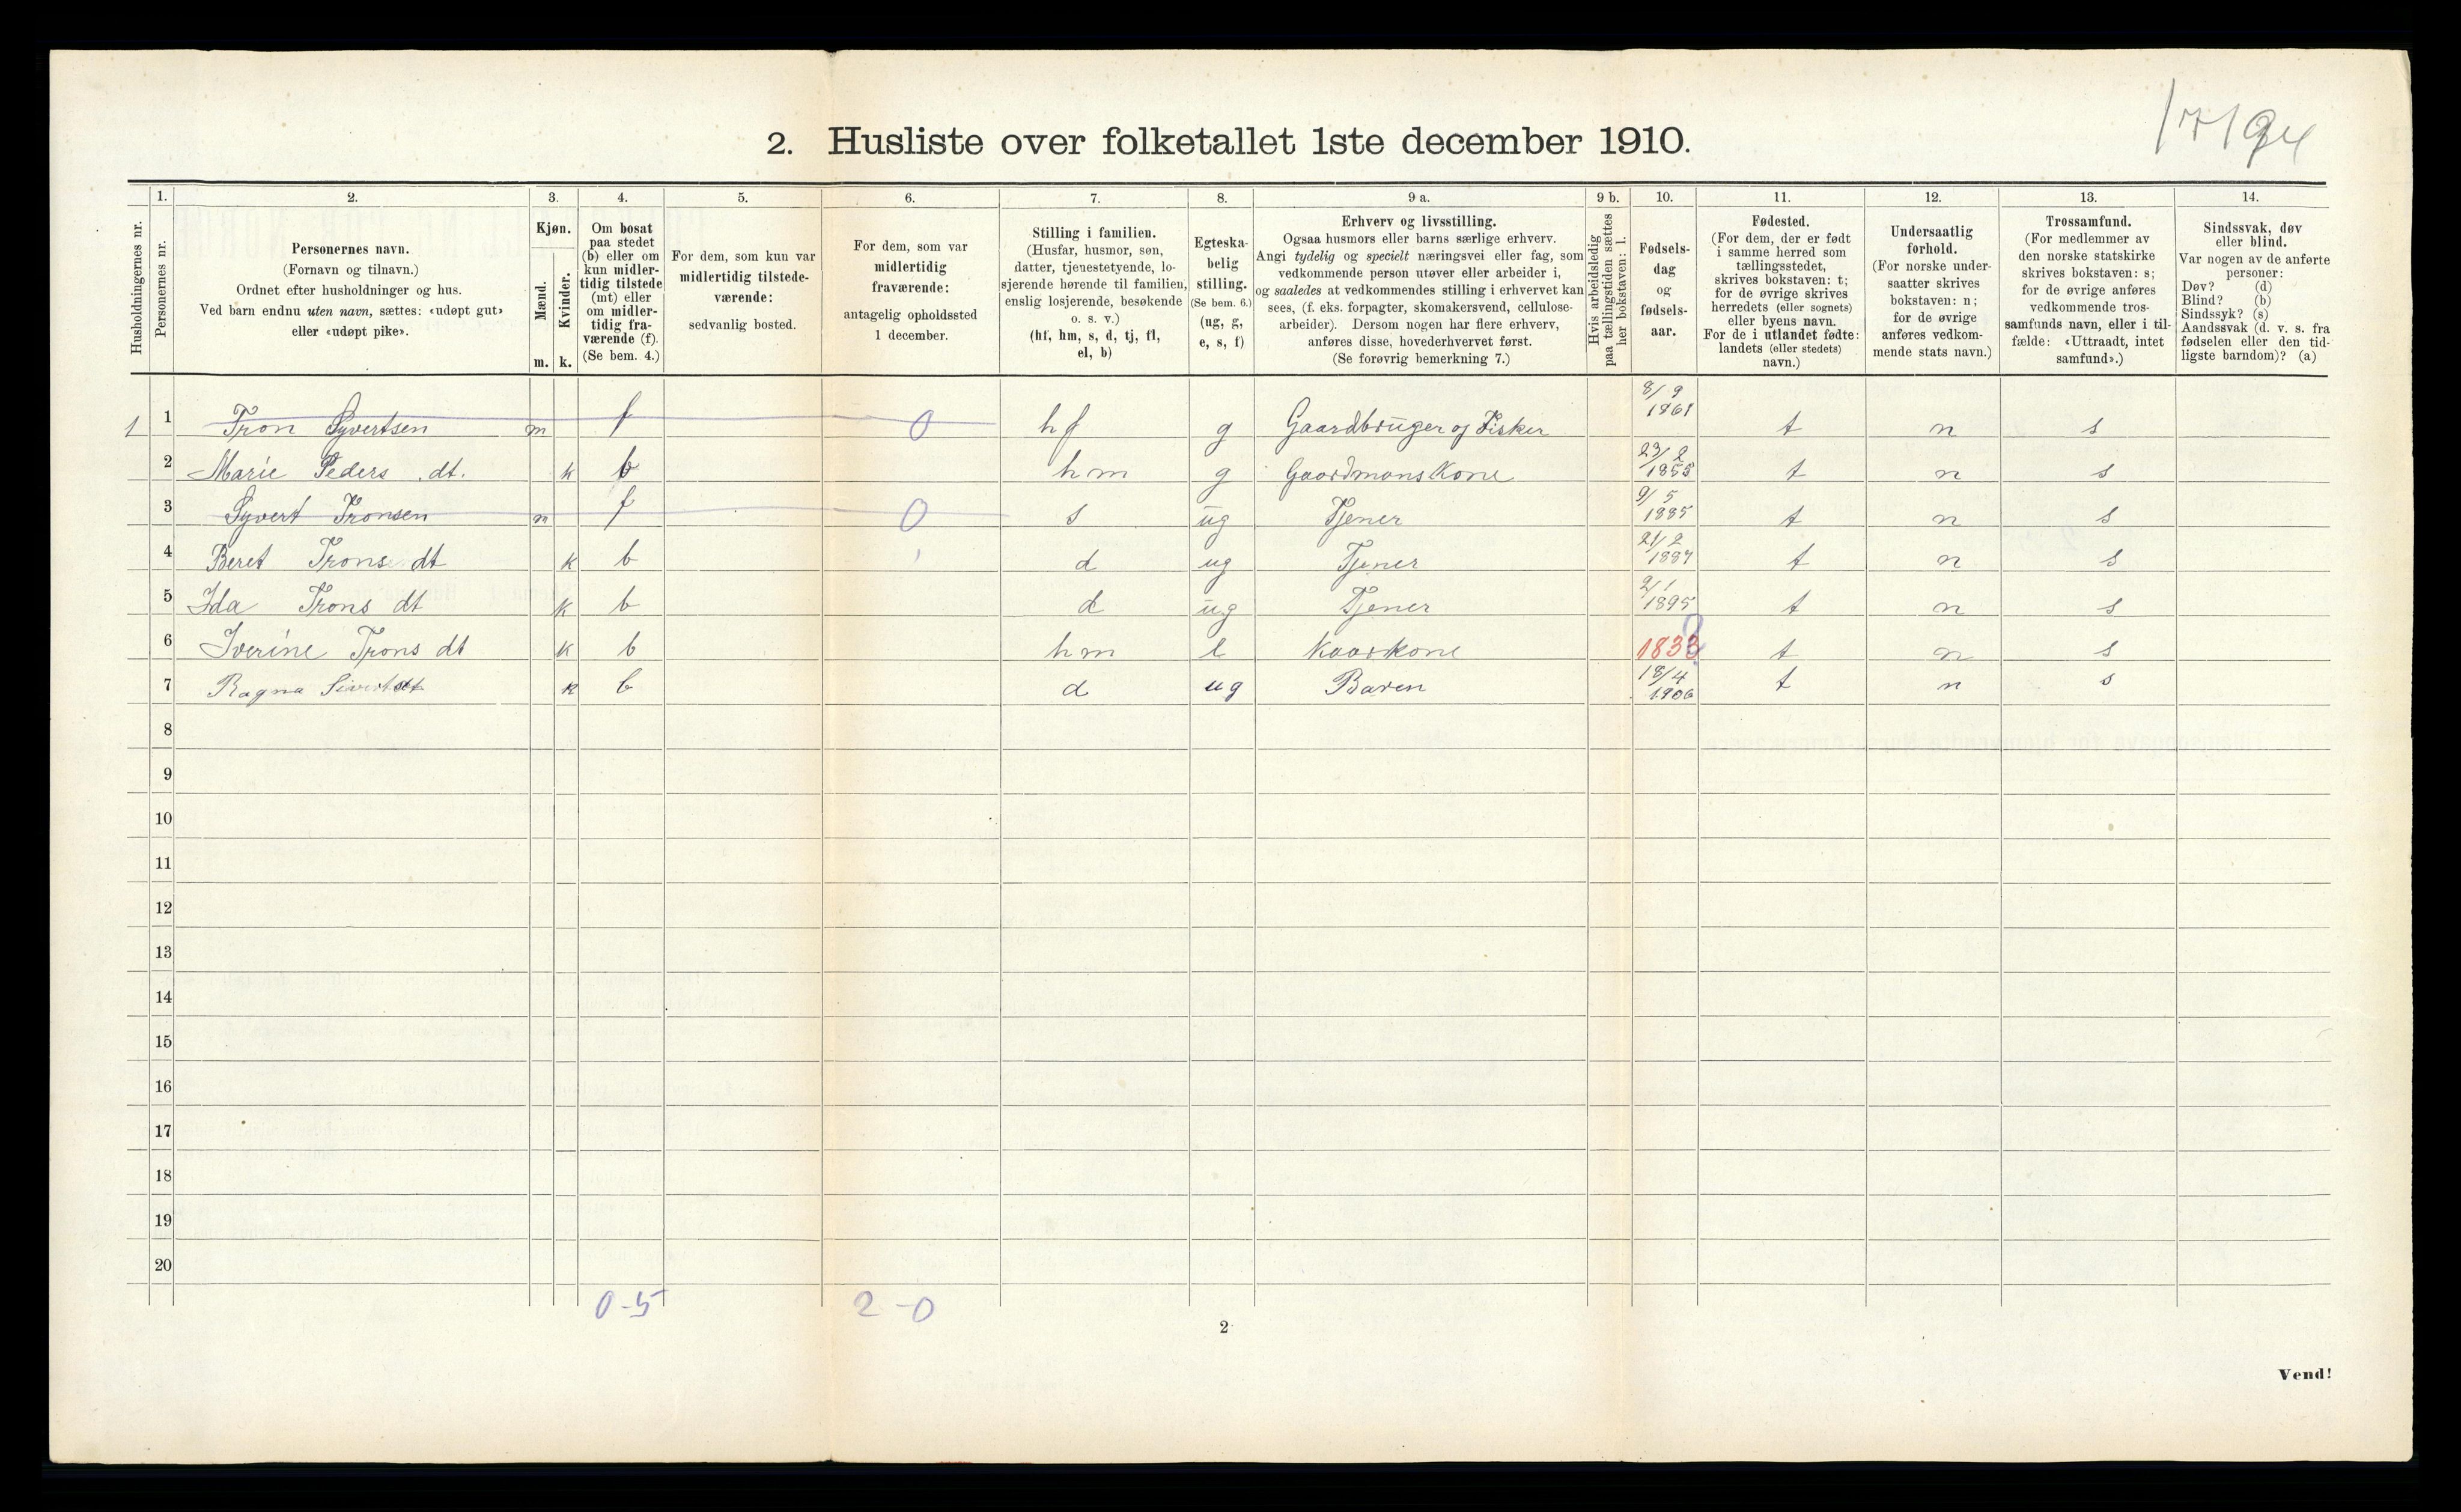 2. Husliste over folketallet 1ste december 1910.
1. 2. 3. 4. 5. 6. 7. 8. 9 a. 9 b. 10. 11. 12. 13. 14.
Husholdningernes nr.
Personernes nr.
Personernes navn.
(Fornavn og tilnavn.)
Ordnet efter husholdninger og hus.
Ved barn endnu uten navn, sættes: «udøpt gut»
eller «udøpt pike».
Kjøn.
Mænd.
Kvinder.
m. k.
Om bosat
paa stedet
(b) eller om
kun midler-
tidig tilstede
(mt) eller
om midler-
tidig fra-
værende (f).
(Se bem. 4.)
For dem, som kun var
midlertidig tilstede-
værende:
sedvanlig bosted.
For dem, som var
midlertidig
fraværende:
antagelig opholdssted
1 december.
Stilling i familien.
(Husfar, husmor, søn,
datter, tjenestetyende, lo-
sjerende hørende til familien,
enslig losjerende, besøkende
o. s. v.)
(hf, hm, s, d, tj, fl,
el, b)
Egteska-
belig
stilling.
(Se bem. 6.)
(ug, g,
e, s, f)
Erhverv og livsstilling.
Ogsaa husmors eller barns særlige erhverv.
Angi tydelig og specielt næringsvei eller fag, som
vedkommende person utøver eller arbeider i,
og saaledes at vedkommendes stilling i erhvervet kan
sees, (f. eks. forpagter, skomakersvend, cellulose-
arbeider). Dersom nogen har flere erhverv,
anføres disse, hovederhvervet først.
(Se forøvrig bemerkning 7.)
Hvis arbeidsledig
paa tællingstiden sættes
her bokstaven: l.
Fødsels-
dag
og
fødsels-
aar.
Fødested.
(For dem, der er født
i samme herred som
tællingsstedet,
skrives bokstaven: t;
for de øvrige skrives
herredets (eller sognets)
eller byens navn.
For de i utlandet fødte:
landets (eller stedets)
navn.)
Undersaatlig
forhold.
(For norske under-
saatter skrives
bokstaven: n;
for de øvrige
anføres vedkom-
mende stats navn.)
Trossamfund.
(For medlemmer av
den norske statskirke
skrives bokstaven: s;
for de øvrige anføres
vedkommende tros-
samfunds navn, eller i til-
fælde: «Uttraadt, intet
samfund».)
Sindssvak, døv
eller blind.
Var nogen av de anførte
personer:
Døv? (d)
Blind? (b)
Sindssyk? (s)
Aandssvak (d. v. s. fra
fødselen eller den tid-
ligste barndom)? (a)
1 1 Tron Syvertsen m f 0 hf g Gaardbruger og Fisker 8/9 1861 t n s
2 Marie Peders dt. k b hm g Gaardmans Kone 23/2 1855 t n s
3 Syvert Tronsen m f 0 s ug Tjener 9/5 1885 t n s
4 Beret Trons dt k b d ug Tjener 21/2 1887 t n s
5 Ida Trons dt k b d ug Tjener 2/1 1895 t n s
6 Iverine Trons dt k b hm e Kaarkone 1833 t n s
7 Ragna Sivertdt k b d ug Baren 18/4 1906 t n s
8
9
10
11
12
13
14
15
16
17
18
19
20
0-5 2-0
2
Vend!